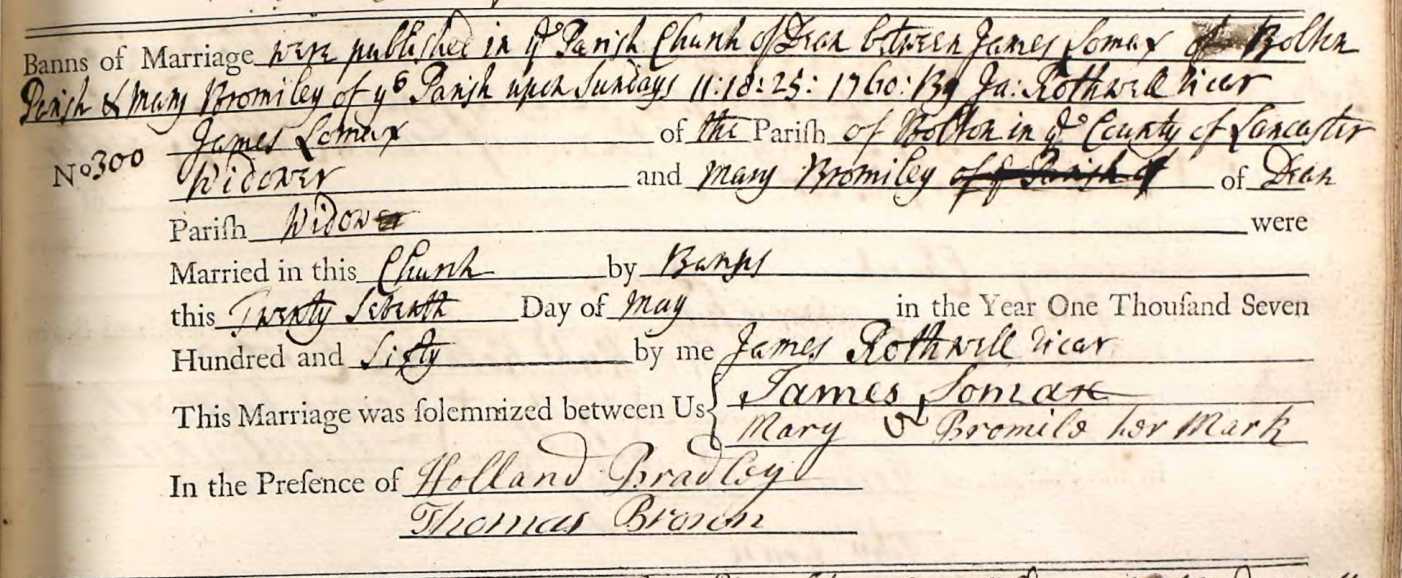 Banns of Marriage were published in yᵉ Parish Church of Dean between James Lomax of Bolton
Parish & Mary Bromiley of yˢ Parish upon Sundays 11: 18: 25: 1760: By Ja: Rothwell Vicar
James Lomax of the Pariſh of Bolton in yᵉ County of Lancaster
Nº 300 Widower and Mary Bromiley of yᵉ Parish of of Dean
Pariſh Widow were
Married in this Church by Banns
this Twenty Seventh Day of May in the Year One Thouſand Seven
Hundred and Sixty by me James Rothwell Vicar
This Marriage was ſolemnized between Us { James Lomax
Mary Bromile her Mark
In the Preſence of Holland Bradley
Thomas Brown